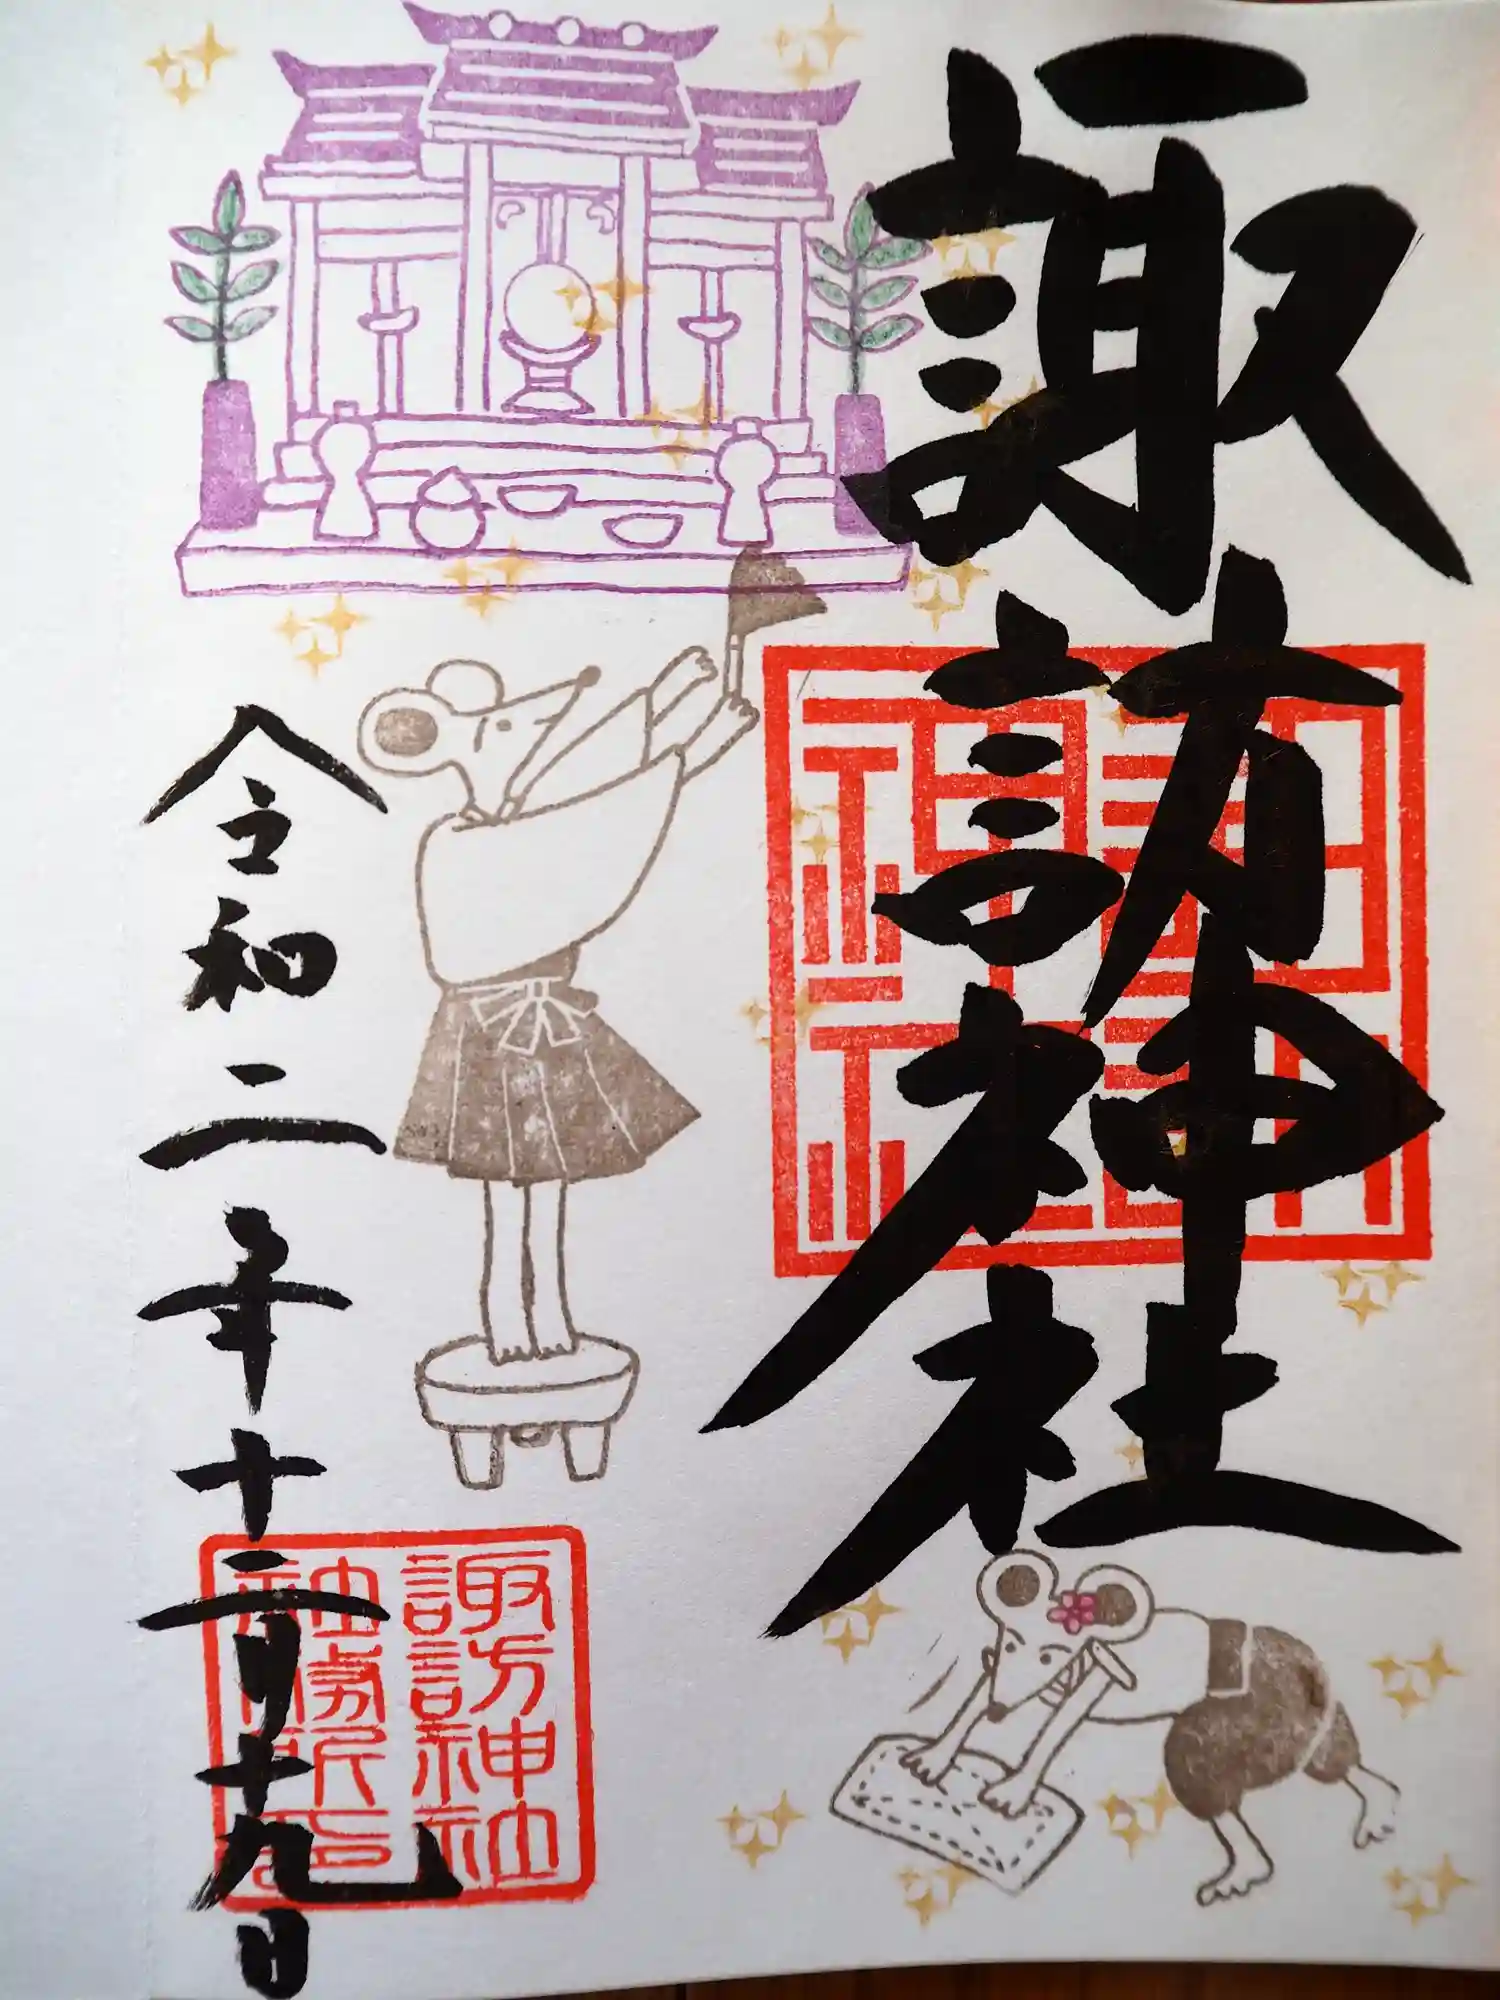 諏訪神社
諏訪神社
令和二年十二月十九日
諏訪神社
社務所印